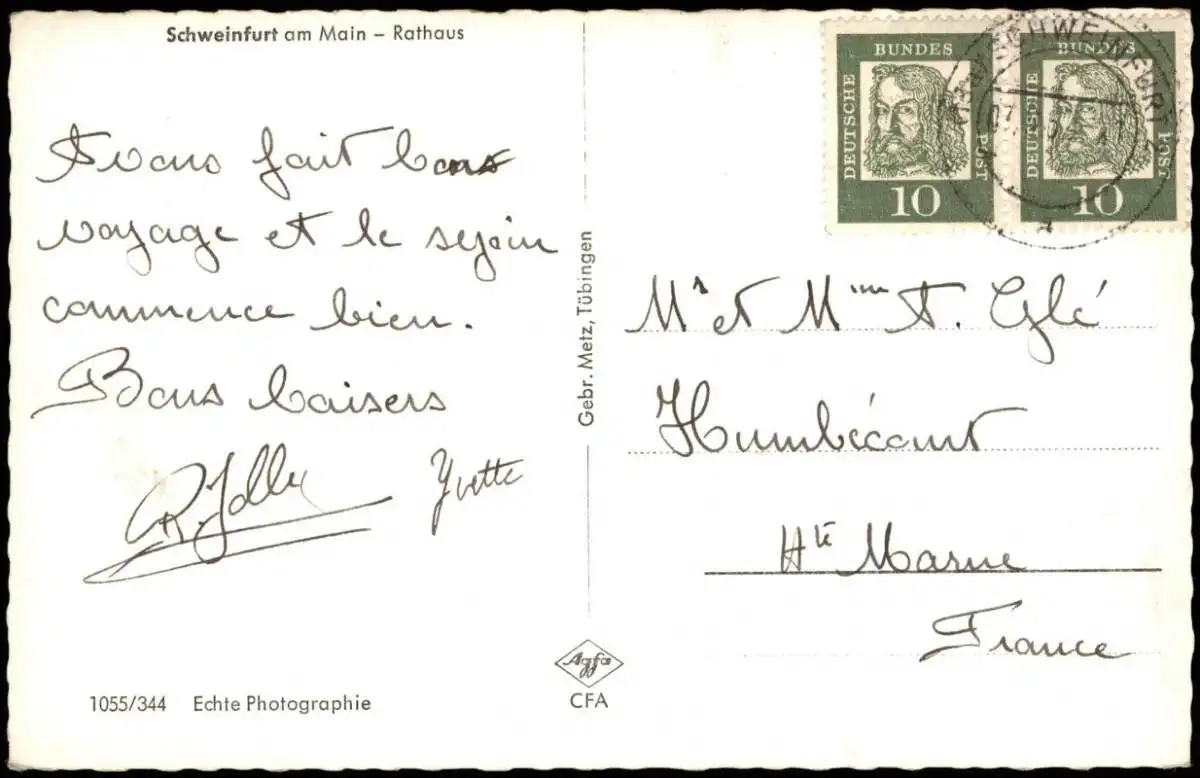 Schweinfurt am Main – Rathaus
Avons fait bon
voyage et le séjour
commence bien.
Bons baisers
R. Jolly Yvette
1055/344 Echte Photographie
Gebr. Metz, Tübingen
Agfa
CFA
DEUTSCHE BUNDES POST
10
DEUTSCHE BUNDES POST
10
SCHWEINFURT
Mr et Mme A. Glé
Humbécourt
Hte Marne
France